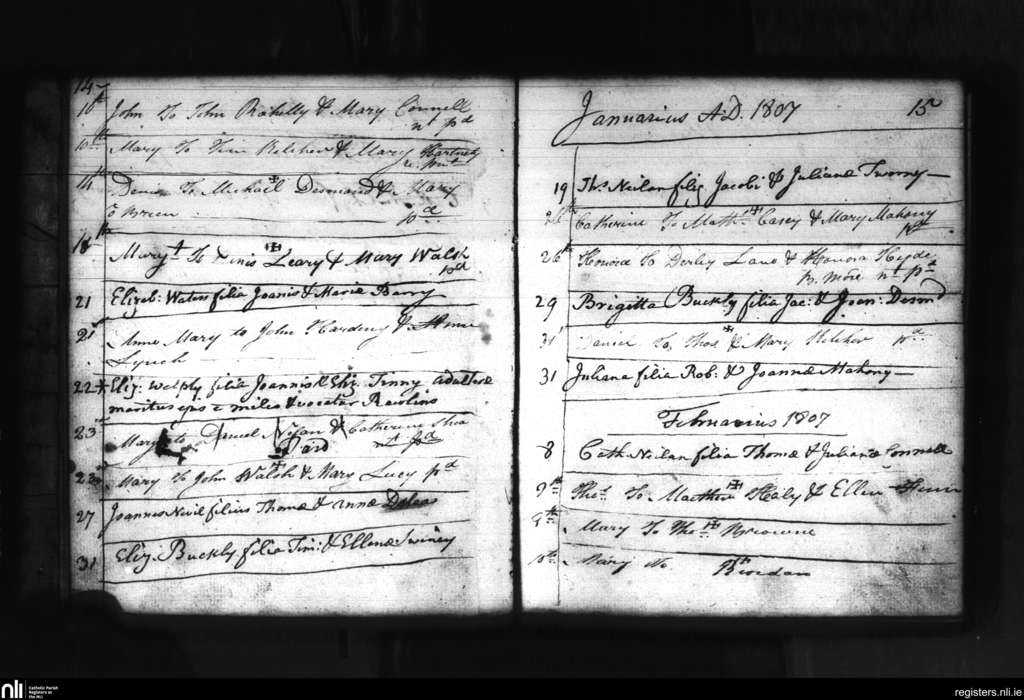 14
10th John To John Rahilly & Mary Connell
nt pd
10th Mary To Tim Kelcher & Mary Hartnety
14th Daniel To Michail Desmond & Mary
O Brien pd
18th Mary To Denis Leary & Mary Walsh
pd
21 Elizab: Waters filia Joannis & Mariæ Barry
21st Anne Mary to John Harding & Anne
Lynch
22 * Eliz: Welply filia Joannis & Eliz. Tinny adulteræ
maritus ejus e miles & vocatur Rawlins
23rd Mary to Daniel Nolan & Catherine Shea
Paid nt pd
22nd Mary To John Walsh & Mary Lucy pd
27 Joannes Nevil filius Thomæ & Annæ
31 Eliz: Buckly filia Tim: & Ellenæ Swiney
Januarius A.D. 1807 15
19 Ths. Neilan filius Jacobi & Julianæ Twomy
26th Catherine To Matth. Casey & Mary Mahony
pd
26th Honora To Derley Lane & Honora Hyde
more nt pd
29 Brigitta Buckly filia Jac: & Joan: Desmd
31 Daniel To Thos & Mary Kelcher pd
31 Juliana filia Rob: & Joannæ Mahony
Februarius 1807
8 Cath Neilan filia Thomæ & Julianæ Connell
9th Thos. To Matthew Healy & Ellen
9th Mary To Thos. Browne
10th Mary To Riordan
nli
Catholic Parish
Registers at
the NLI
registers.nli.ie